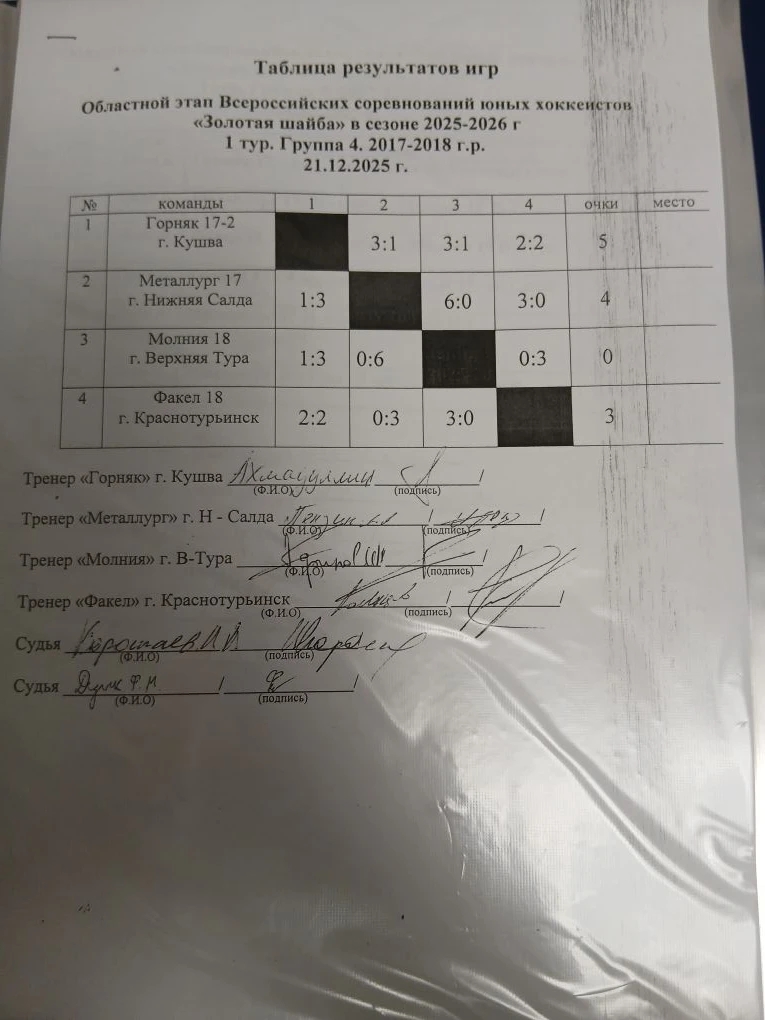 Таблица результатов игр
Областной этап Всероссийских соревнований юных хоккеистов
«Золотая шайба» в сезоне 2025-2026 г
1 тур. Группа 4. 2017-2018 г.р.
21.12.2025 г.
№ команды 1 2 3 4 очки место
1 Горняк 17-2
г. Кушва 3:1 3:1 2:2 5
2 Металлург 17
г. Нижняя Салда 1:3 6:0 3:0 4
3 Молния 18
г. Верхняя Тура 1:3 0:6 0:3 0
4 Факел 18
г. Краснотурьинск 2:2 0:3 3:0 3
Тренер «Горняк» г. Кушва Ахмадуллин /
(Ф.И.О) (подпись)
Тренер «Металлург» г. Н - Салда / /
(Ф.И.О) (подпись)
Тренер «Молния» г. В-Тура / /
(Ф.И.О) (подпись)
Тренер «Факел» г. Краснотурьинск / /
(Ф.И.О) (подпись)
Судья
(Ф.И.О) (подпись)
Судья / /
(Ф.И.О) (подпись)